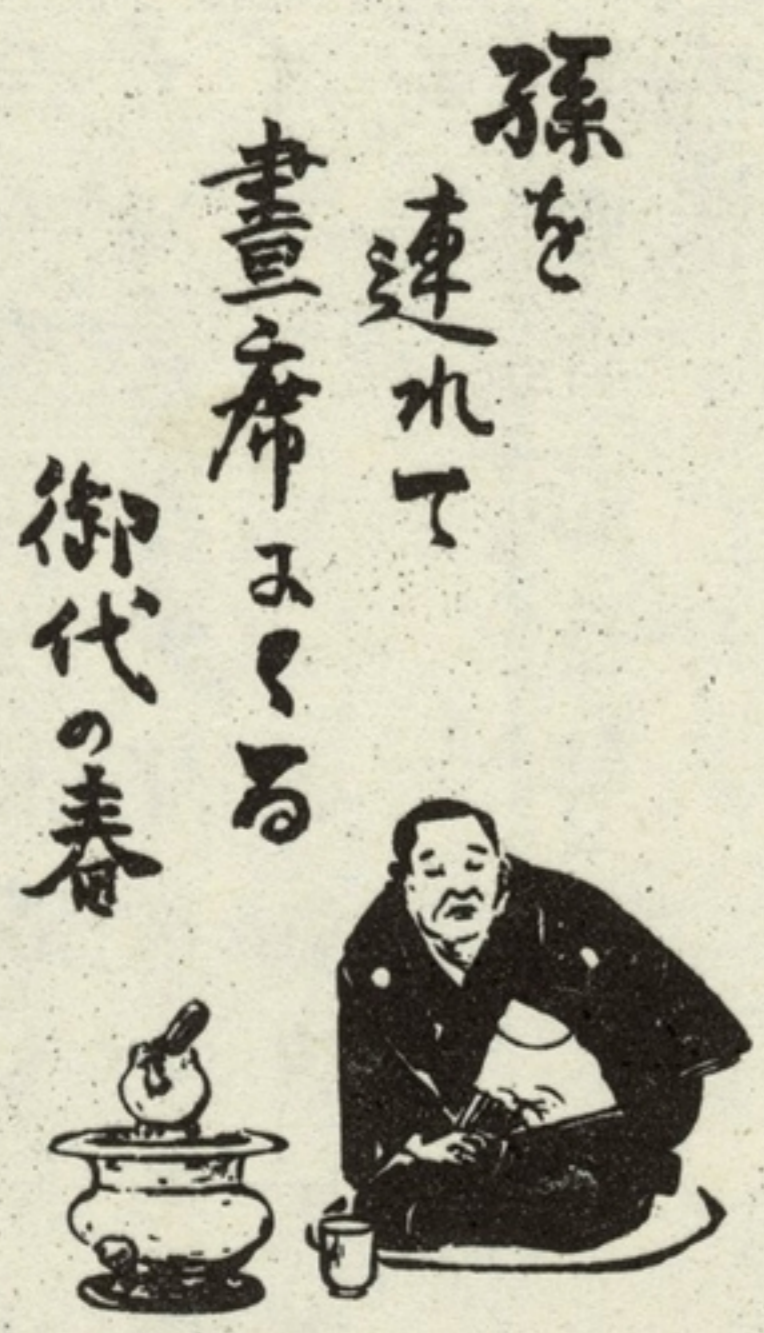 孫を
連れて
晝席にくる
御代の春